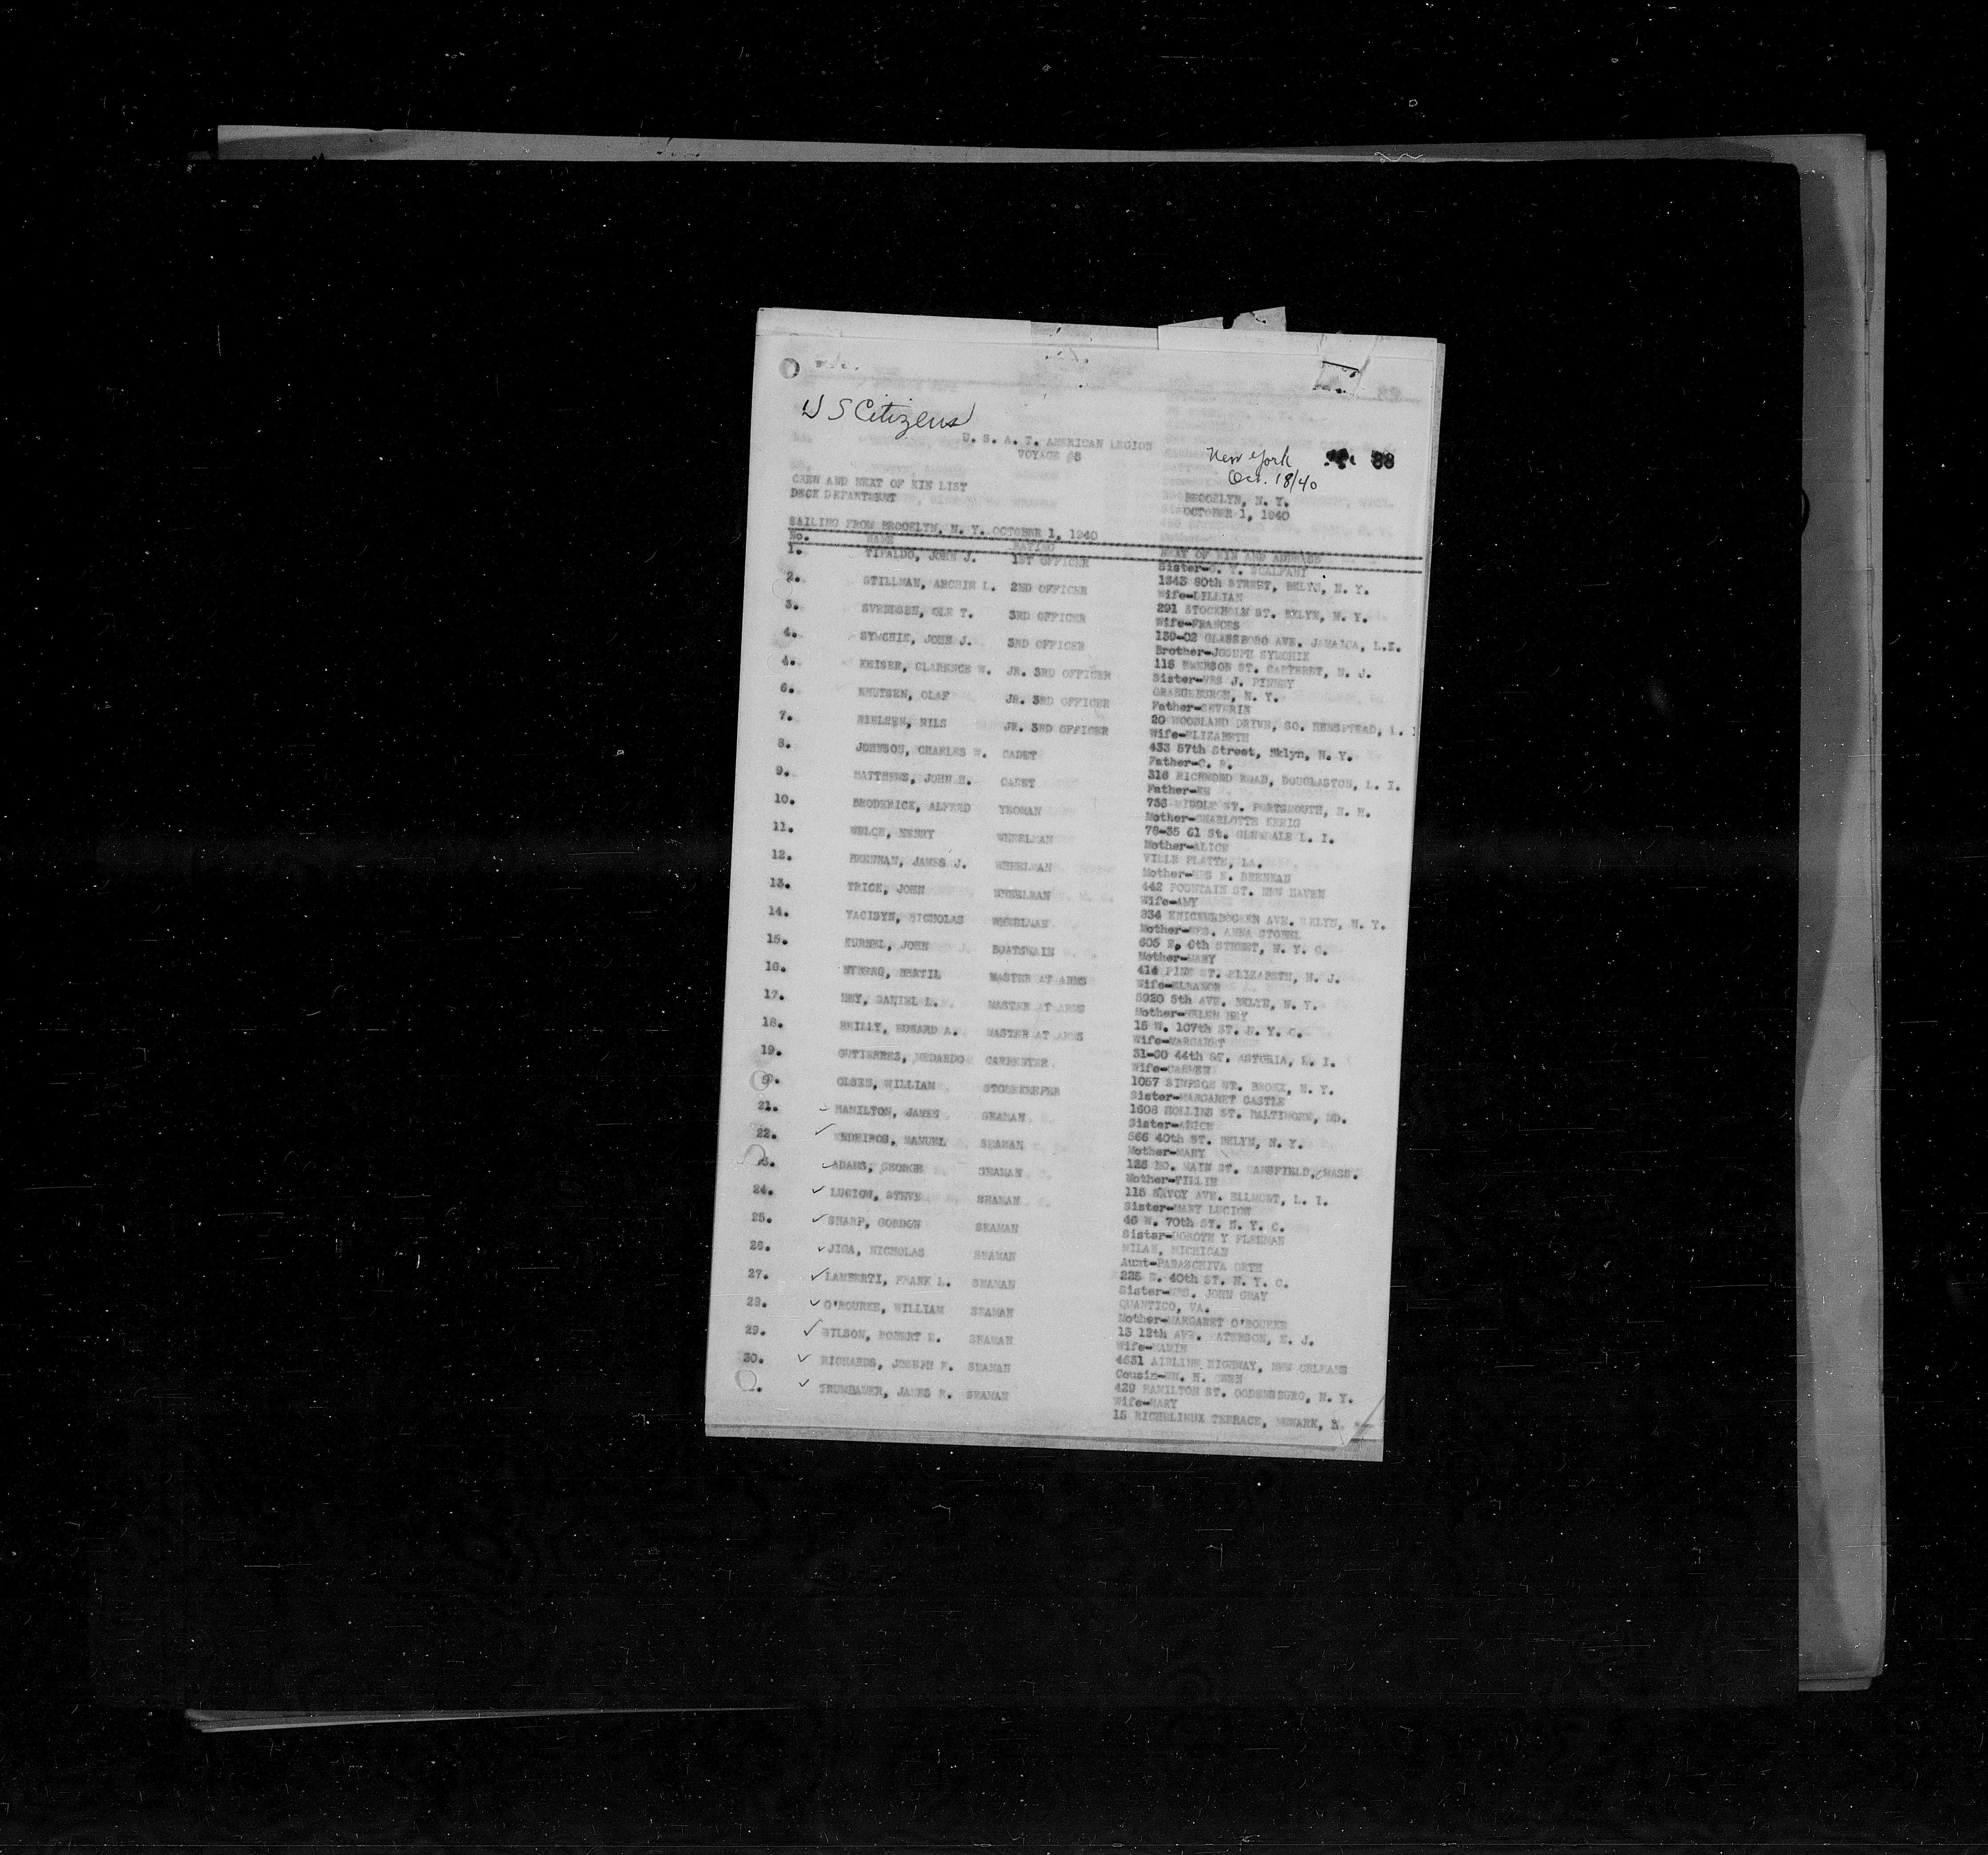 U S Citizens
U. S. A. T. AMERICAN LEGION
VOYAGE #8
New York
Oct. 18/40
88
CREW AND NEXT OF KIN LIST
DECK DEPARTMENT
BROOKLYN, N. Y.
OCTOBER 1, 1940
SAILING FROM BROOKLYN, N. Y. OCTOBER 1, 1940
No. NAME RATING NEXT OF KIN AND ADDRESS
1. TIPALDO, JOHN J. 1ST OFFICER Sister- SCALFANI
1343 80th STREET, BKLYN, N. Y.
2. STILLMAN, ARCHIE L. 2ND OFFICER Wife-LILLIAN
291 STOCKHOLM ST. BKLYN, N. Y.
3. SVENDSEN, OLE T. 3RD OFFICER Wife-FRANCES
139-02 GLASSBORO AVE. JAMAICA, L.I.
4. SYMCHIK, JOHN J. 3RD OFFICER Brother-JOSEPH SYMCHIK
115 EMERSON ST. CARTERET, N. J.
4. KEISER, CLARENCE W. JR. 3RD OFFICER Sister-MRS J. FINNEY
ORANGEBURGH, N. Y.
6. KNUTSEN, OLAF JR. 3RD OFFICER Father-SEVERIN
20 WOODLAND DRIVE, SO. HEMPSTEAD, L. I
7. NIELSEN, NILS JR. 3RD OFFICER Wife-ELIZABETH
433 57th Street, Bklyn, N. Y.
8. JOHNSON, CHARLES W. CADET Father-C.
316 RICHMOND ROAD, DOUGLASTON, L. I.
9. MATTHEWS, JOHN CADET Father-
736 MIDDLE ST. PORTSMOUTH, N. H.
10. BRODERICK, ALFRED YEOMAN Mother-CHARLOTTE
78-35 61 St. GLENDALE L. I.
11. WELCH, HENRY WHEELMAN Mother-ALICE
VILLE PLATTE, LA.
12. BRENNAN, JAMES J. WHEELMAN Mother-MRS E. BRENNAN
442 FOUNTAIN ST. NEW HAVEN
13. TRICK, JOHN WHEELMAN Wife-AMY
834 KNICKERBOCKER AVE. BKLYN, N. Y.
14. YACISYN, NICHOLAS WHEELMAN Mother-MRS. ANNA STOBEL
605 E. 6th STREET, N. Y. C.
15. JOHN BOATSWAIN Mother-MARY
414 PINE ST. ELIZABETH, N. J.
16. NYBERG, BERTIL MASTER AT ARMS Wife-ELEANOR
5920 5th AVE. BKLYN, N. Y.
17. HEY, DANIEL L. MASTER AT ARMS Mother-HELEN HEY
15 W. 107th ST. N. Y. C.
18. REILLY, EDWARD A. MASTER AT ARMS Wife-MARGARET
31-30 44th ST. ASTORIA, L. I.
19. GUTIERREZ, MEDARDO CARPENTER Wife-CARMEN
1057 SIMPSON ST. BRONX, N. Y.
OLSEN, WILLIAM STOREKEEPER Sister-MARGARET CASTLE
1608 HOLLINS ST. BALTIMORE, MD.
21. HAMILTON, JAMES SEAMAN Sister-ALICE
566 40th ST. BKLYN, N. Y.
22. MEDEIROS, MANUEL SEAMAN Mother-MARY
126 NO. MAIN ST. MANSFIELD, MASS.
23. ADAMS, GEORGE SEAMAN Mother-TILLIE
115 SAVOY AVE. ELLMONT, L. I.
24. LUCION, STEVE SEAMAN Sister-MARY LUCION
46 W. 70th ST. N. Y. C.
25. SHARP, GORDON SEAMAN Sister-DOROTH Y FLEEMAN
MILAN, MICHIGAN
26. JIGA, NICHOLAS SEAMAN Aunt-PARASCHIVA ORTH
225 E. 40th ST. N. Y. C.
27. LAMBERTI, FRANK L. SEAMAN Sister-MRS. JOHN GRAY
QUANTICO, VA.
28. O'ROURKE, WILLIAM SEAMAN Mother-MARGARET O'ROURKE
13 12th AVE. PATERSON, N. J.
29. WILSON, ROBERT E. SEAMAN Wife-MAMIE
4631 AIRLINE HIGHWAY, NEW ORLEANS
30. RICHARDS, JOSEPH F. SEAMAN Cousin-WM. H. OWEN
429 HAMILTON ST. OGDENSBURG, N. Y.
TRUMBAUER, JAMES R. SEAMAN Wife-MARY
15 RICHELIEUX TERRACE, NEWARK, N.